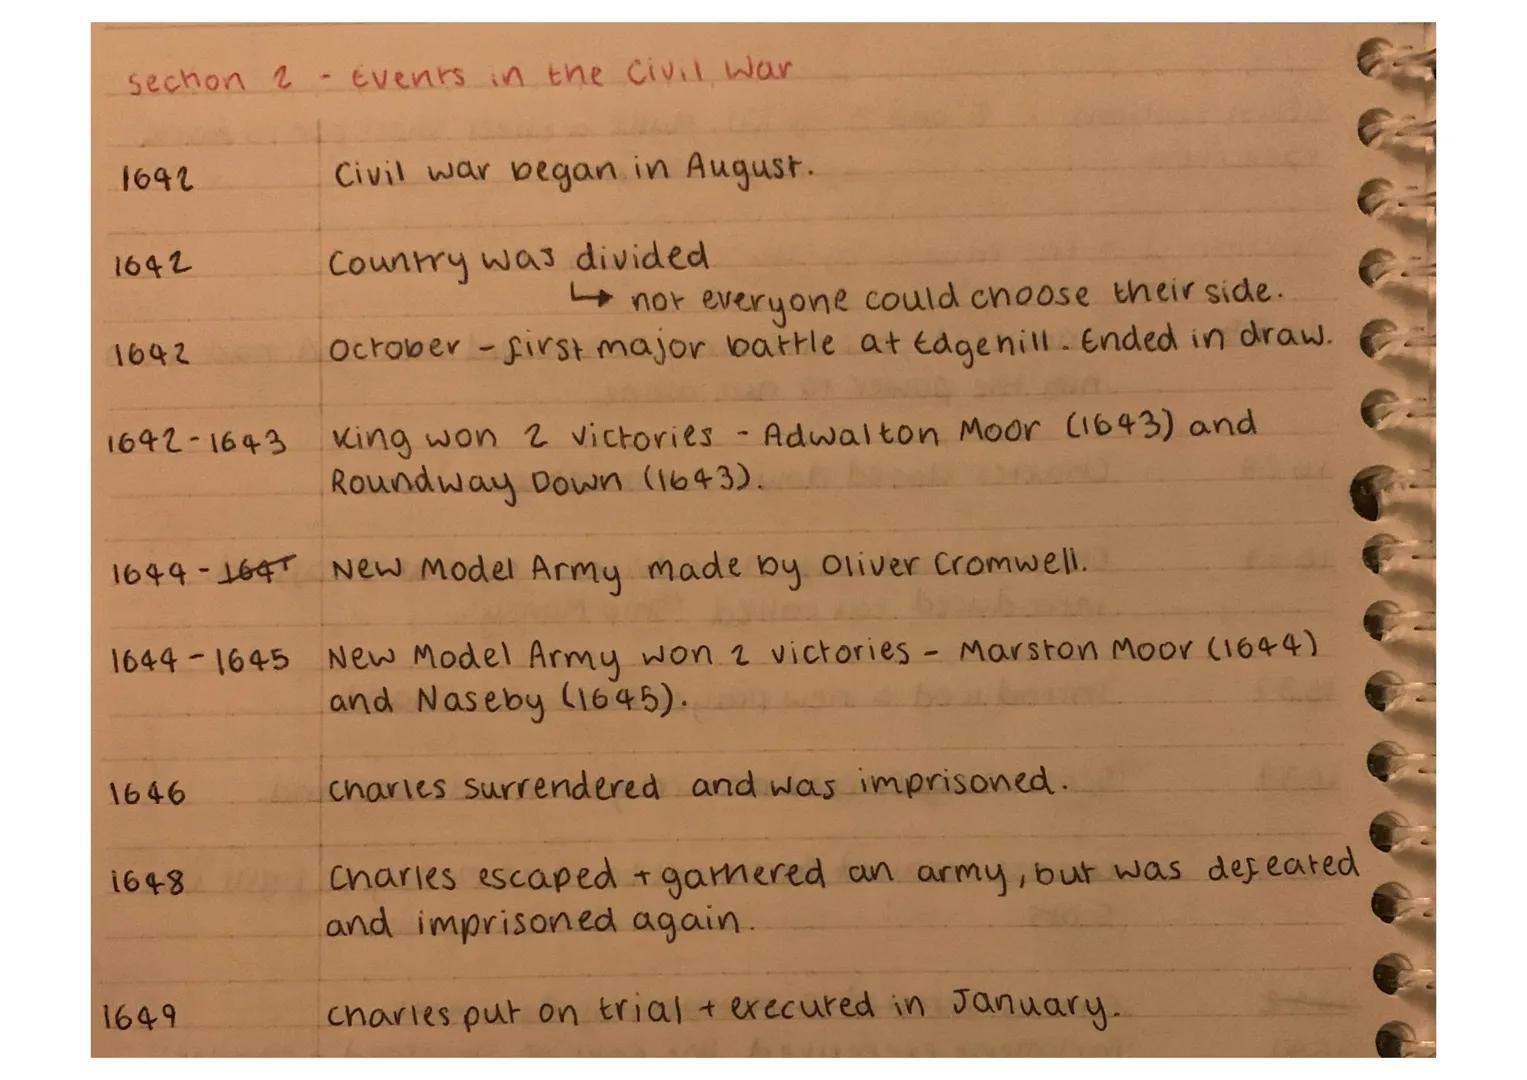 Section 2 - Events in the Civil War
1642 Civil war began in August.
1642 Country was divided
↳ not everyone could choose their side.
1642 October - first major battle at Edgehill. Ended in draw.
1642-1643 King won 2 victories - Adwalton Moor (1643) and
Roundway Down (1643).
1644 - 1645 New Model Army made by Oliver Cromwell.
1644-1645 New Model Army won 2 victories - Marston Moor (1644)
and Naseby (1645).
1646 Charles surrendered and was imprisoned.
1648 Charles escaped + gathered an army, but was defeated
and imprisoned again.
1649 Charles put on trial + executed in January.